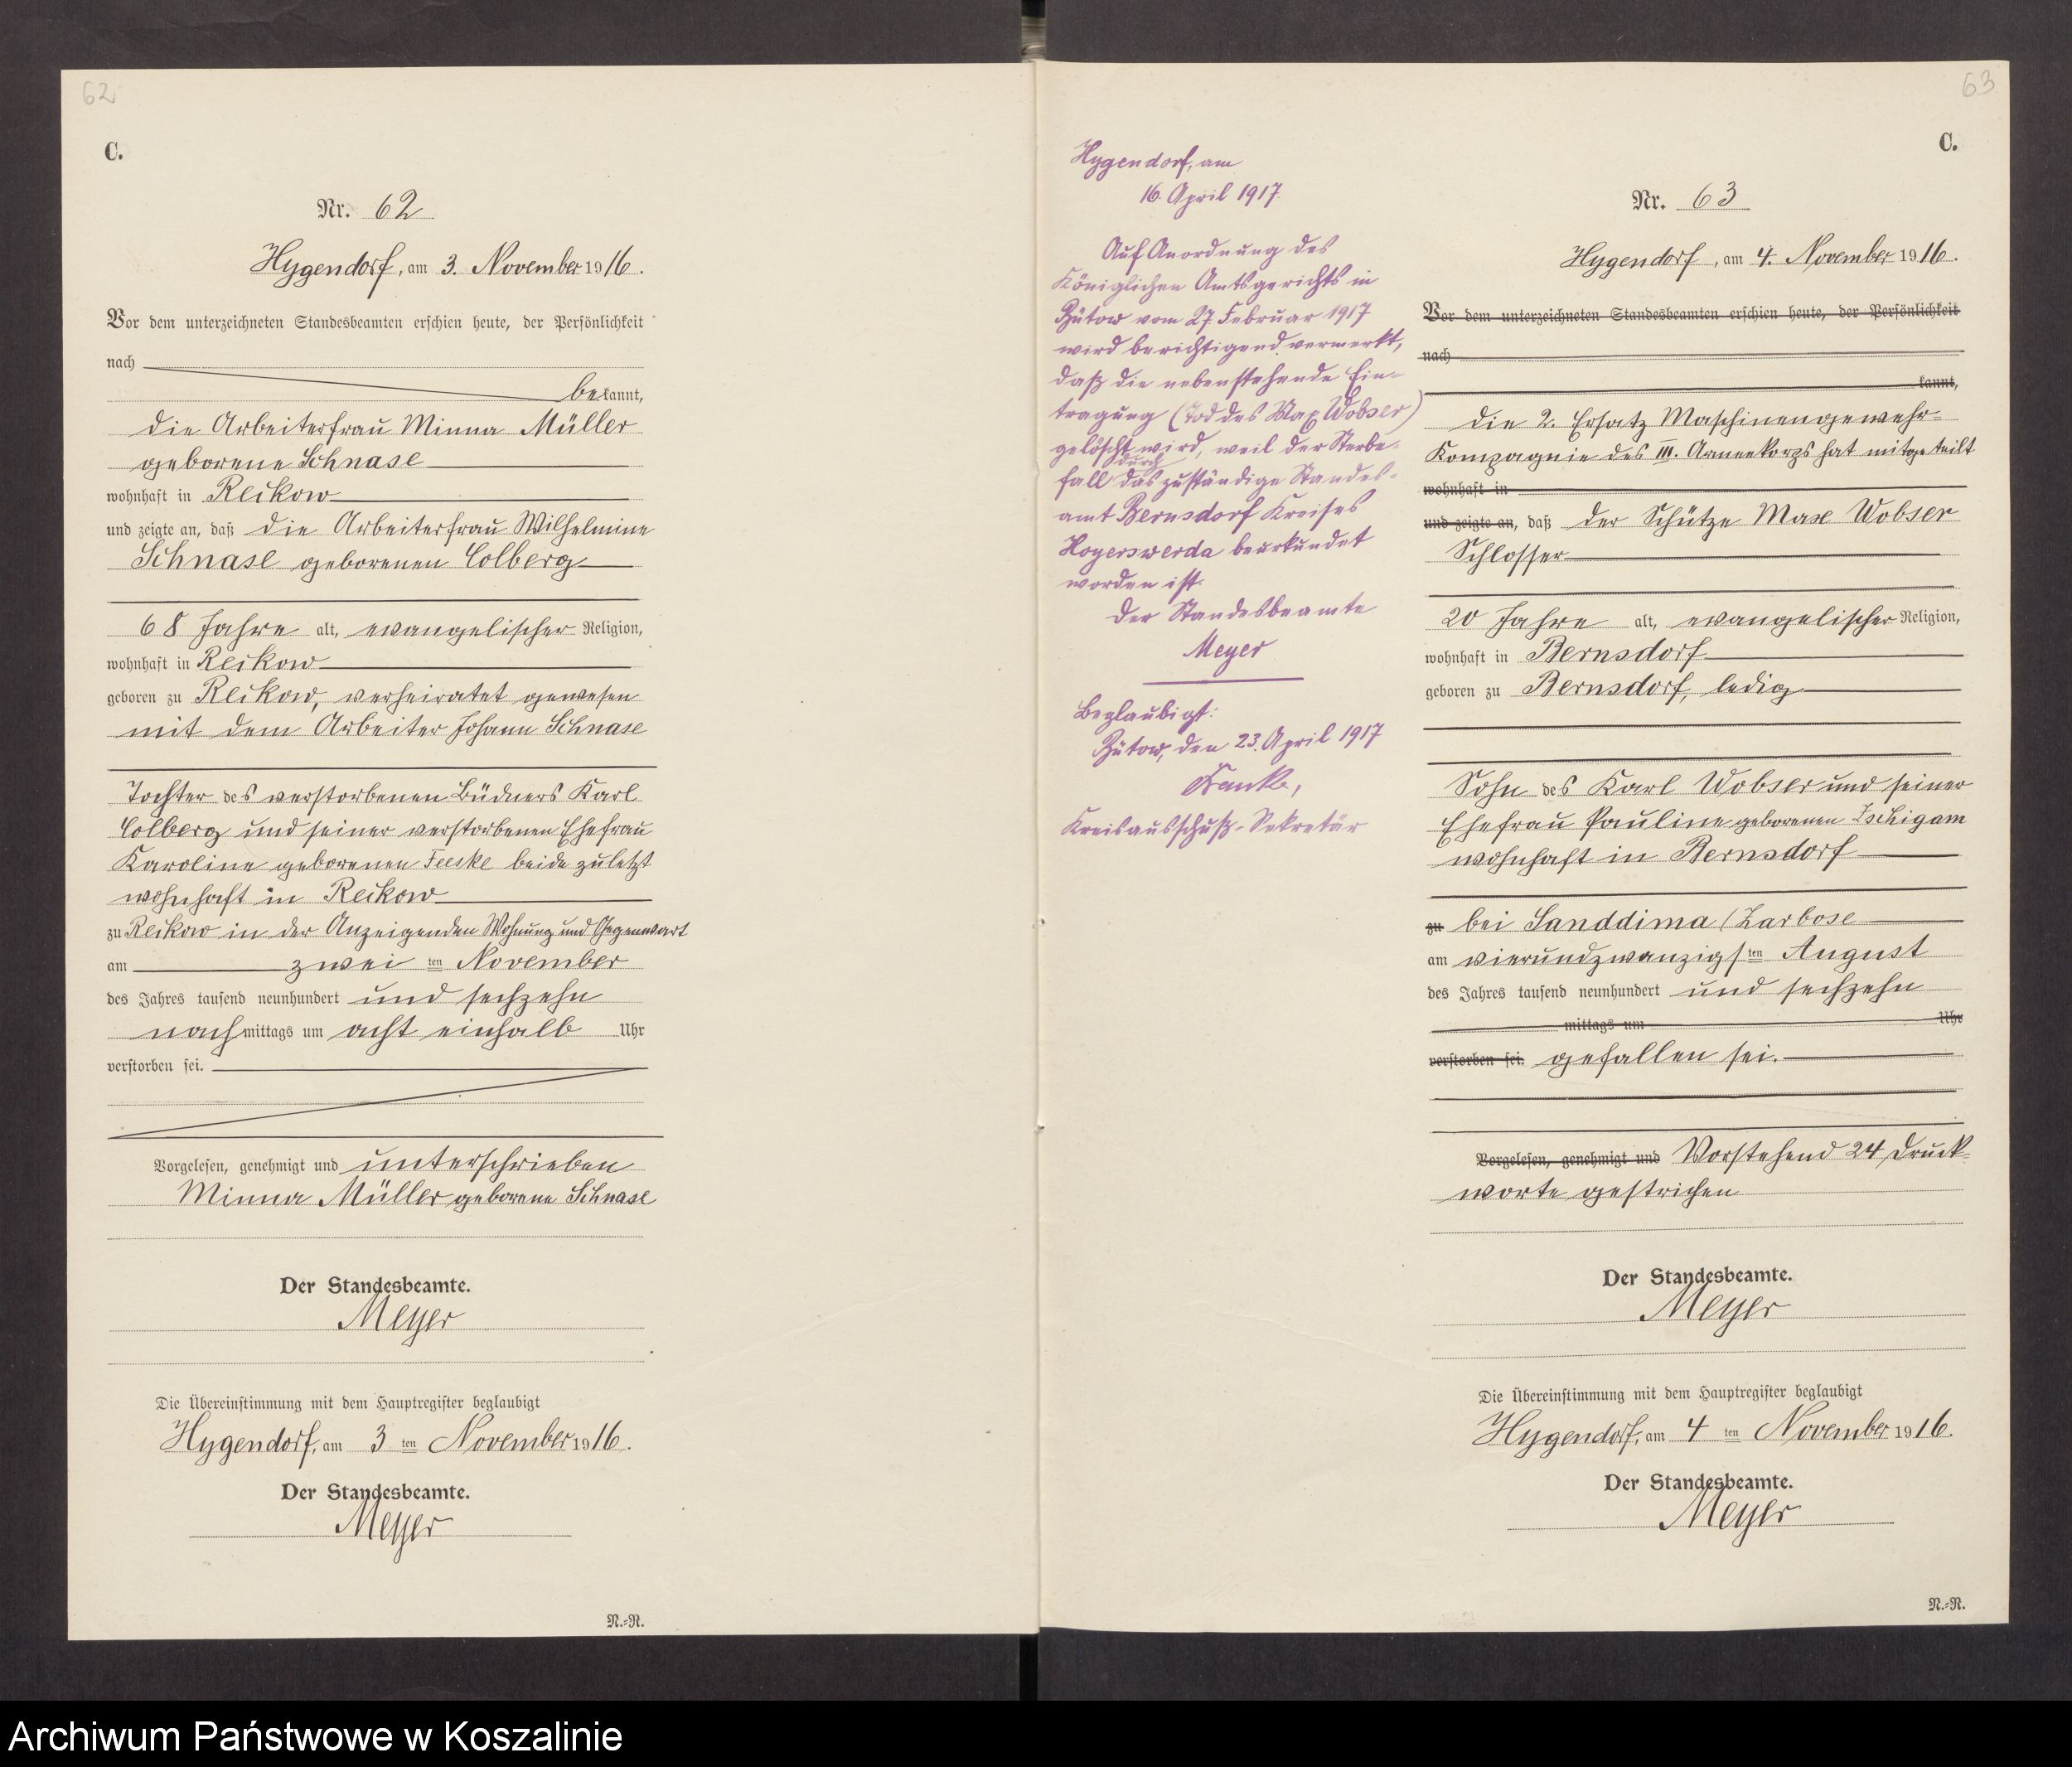 62
C.
Nr. 62
Hygendorf, am 3. November 1916.
Vor dem unterzeichneten Standesbeamten erschien heute, der Persönlichkeit
nach
bekannt,
die Arbeiterfrau Minna Müller
geborene Schnase
wohnhaft in Reikow
und zeigte an, daß die Arbeiterfrau Wilhelmine
Schnase geborenen Colberg
68 Jahre alt, evangelischer Religion,
wohnhaft in Reikow
geboren zu Reikow, verheiratet gewesen
mit dem Arbeiter Johann Schnase
Tochter des verstorbenen Büdners Karl
Colberg und seiner verstorbenen Ehefrau
Karoline geborenen Feeske beide zuletzt
wohnhaft in Reikow
zu Reikow in der Anzeigenden Wohnung und Gegenwart
am zweiten November
des Jahres tausend neunhundert und sechzehn
nachmittags um acht einhalb Uhr
verstorben sei.
Vorgelesen, genehmigt und unterschrieben
Minna Müller geborene Schnase
Der Standesbeamte.
Meyer
Die Übereinstimmung mit dem Hauptregister beglaubigt
Hygendorf, am 3 ten November 1916.
Der Standesbeamte.
Meyer
N.=R.
63
C.
Hygendorf, am
16. April 1917.
Auf Anordnung des
Königlichen Amtsgerichts in
Bütow vom 27. Februar 1917
wird berichtigend vermerkt,
daß die nebenstehende Ein-
tragung (Tod des Max Wobser)
gelöscht wird, weil der Sterbe-
fall durch das zuständige Standes-
amt Bernsdorf Kreises
Hoyerswerda beurkundet
worden ist.
Der Standesbeamte
Meyer
Beglaubigt:
Bütow, den 23. April 1917
Kreisausschuß-Sekretär
Nr. 63
Hygendorf, am 4. November 1916.
Vor dem unterzeichneten Standesbeamten erschien heute, der Persönlichkeit
nach
kannt,
die 2. Ersatz Maschinengewehr-
Kompagnie des III. Armeekorps hat mitgeteilt
wohnhaft in
und zeigte an, daß der Schütze Max Wobser
Schlosser
20 Jahre alt, evangelischer Religion,
wohnhaft in Bernsdorf
geboren zu Bernsdorf, ledig
Sohn des Karl Wobser und seiner
Ehefrau Pauline geborenen Zschigam
wohnhaft in Bernsdorf
zu bei Sanddima (Zarbose
am vierundzwanzigsten August
des Jahres tausend neunhundert und sechzehn
mittags um Uhr
verstorben sei. gefallen sei.
Vorgelesen, genehmigt und Vorstehend 24 Druck-
worte gestrichen
Der Standesbeamte.
Meyer
Die Übereinstimmung mit dem Hauptregister beglaubigt
Hygendorf, am 4 ten November 1916.
Der Standesbeamte.
Meyer
N.=R.
Archiwum Państwowe w Koszalinie